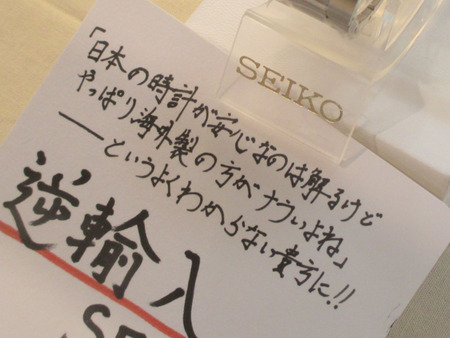 SEIKO
「日本の時計が安心なのは解るけど
やっぱり海外製の方がナウいよね」
――というよくわからない貴方に!!
逆輸入